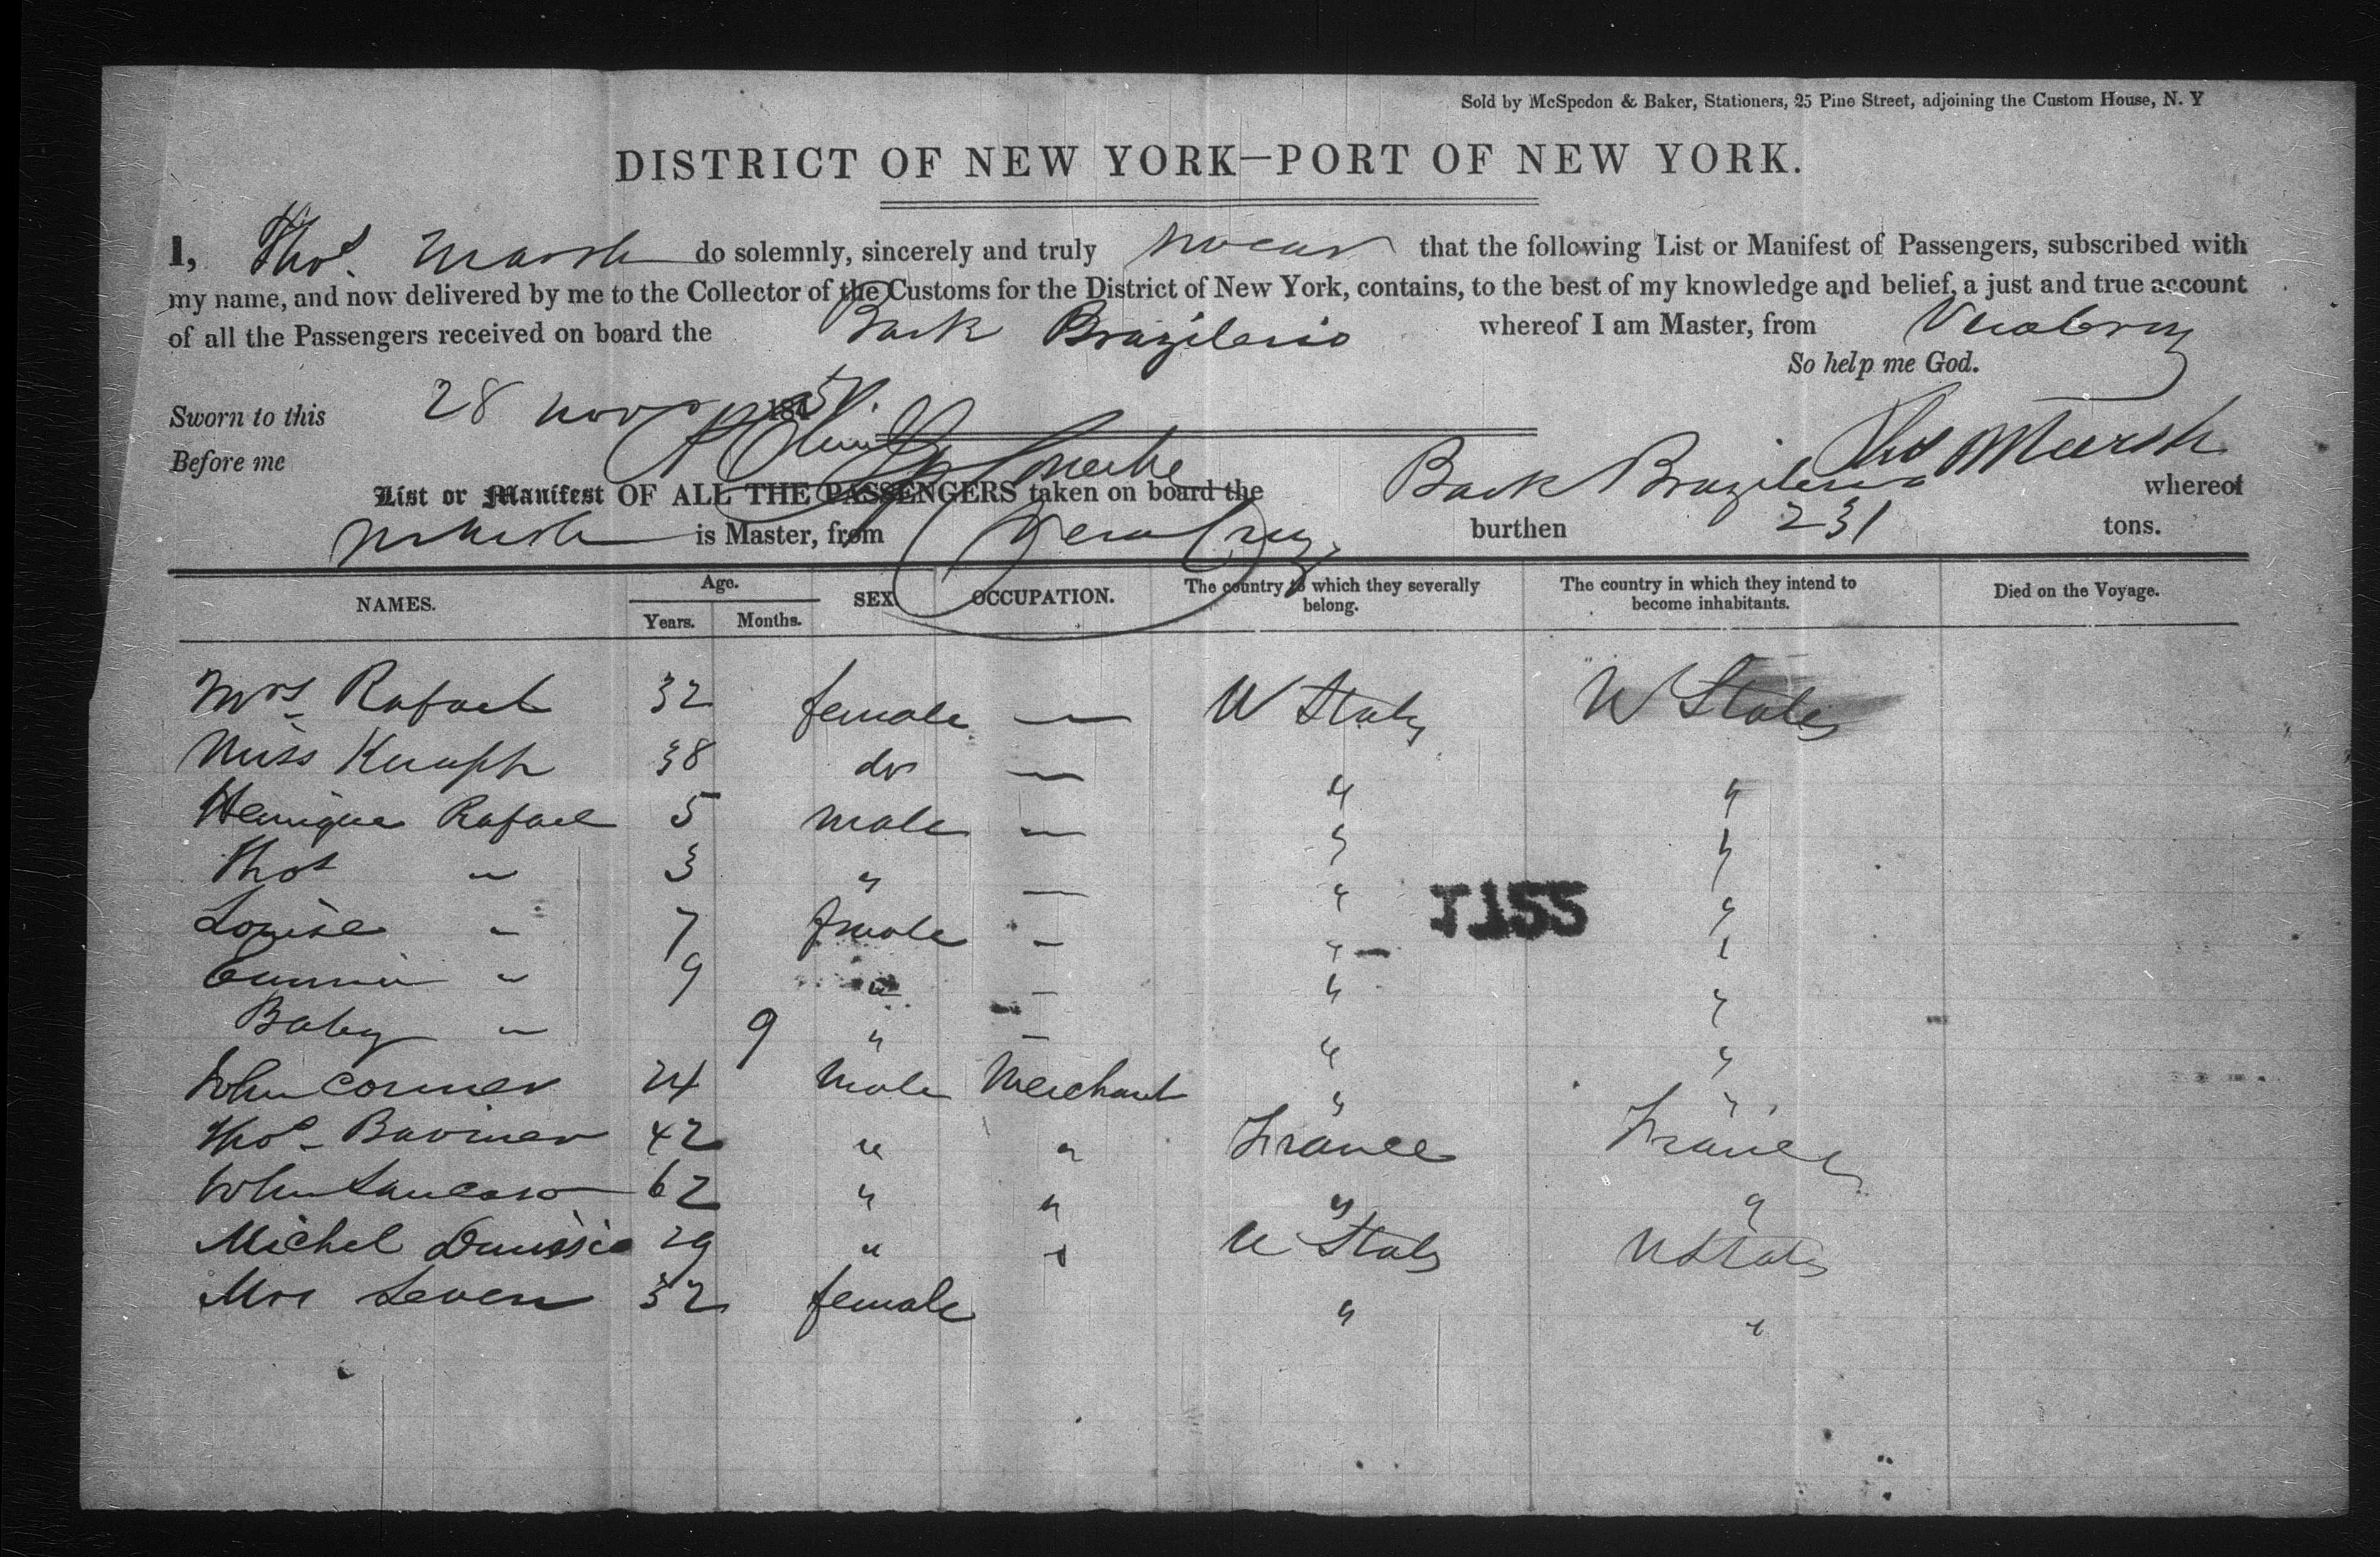 Sold by McSpedon & Baker, Stationers, 25 Pine Street, adjoining the Custom House, N. Y
DISTRICT OF NEW YORK—PORT OF NEW YORK.
I, Thos. Marsh do solemnly, sincerely and truly swear that the following List or Manifest of Passengers, subscribed with
my name, and now delivered by me to the Collector of the Customs for the District of New York, contains, to the best of my knowledge and belief, a just and true account
of all the Passengers received on board the Bark Brazilerio whereof I am Master, from Veracruz
So help me God.
Sworn to this 28 Nov 185
Thos Marsh
Before me
List or Manifest OF ALL THE PASSENGERS taken on board the Bark Brazilerio whereof
Marsh is Master, from Vera Cruz burthen 231 tons.
NAMES. Age. Years. Months. SEX OCCUPATION. The country to which they severally belong. The country in which they intend to become inhabitants. Died on the Voyage.
Mrs Rafael 32 female — U States U States
Miss 38 do — " "
Henrique Rafael 5 male — " "
Thos " 3 " — " "
Louise " 7 female — " "
" 9 " — " "
Baby " 9 " — " "
John Conner 24 Male Merchant " "
Thos 42 " " France France
John 62 " " " "
Michel 29 " " U States U States
Mrs Leven 32 female " "
J155